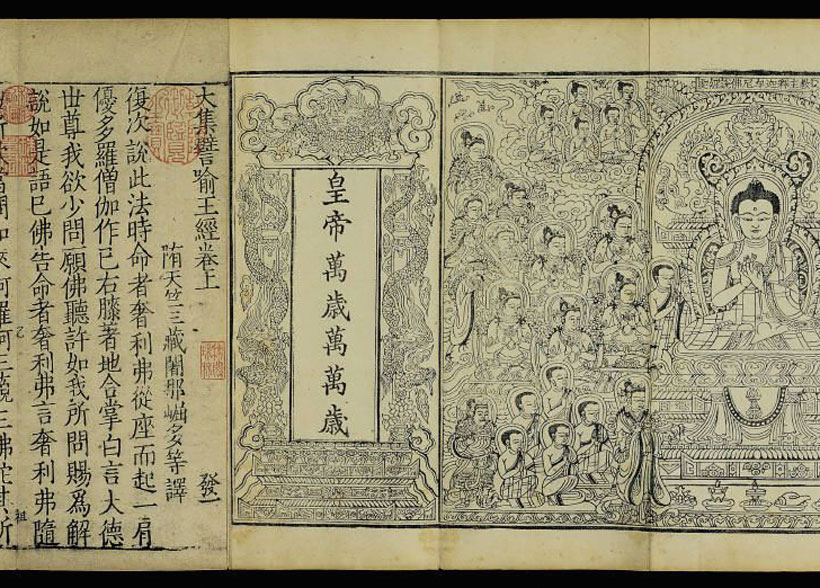 皇帝萬歲萬萬歲
大集譬喻王經卷上
隋天竺三藏闍那崛多等譯 發一
復次說此法時命者奢利弗從座而起一肩
優多羅僧伽作已右膝著地合掌白言大德
世尊我欲少問願佛聽許如我所問賜爲解
說如是語已佛告命者奢利弗言奢利弗隨
如來阿羅訶三藐三佛陀